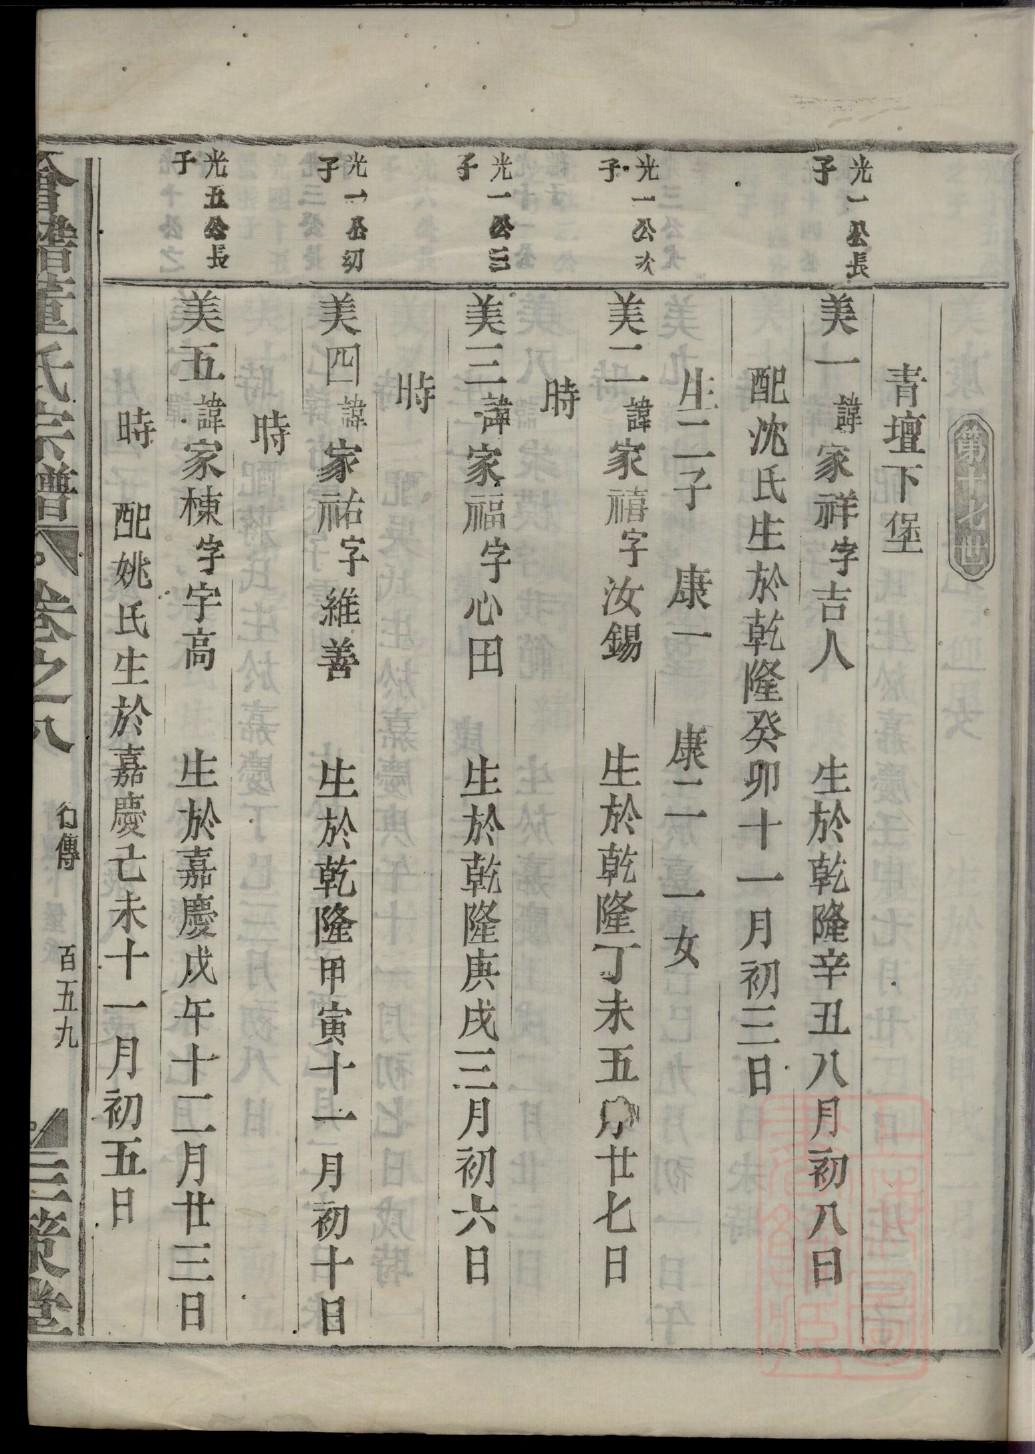 第十七世
青壇下堡
光一公長
子
美一諱家祥字吉人 生於乾隆辛丑八月初八日
配沈氏生於乾隆癸卯十一月初三日
生二子 康一 康二 一女
光一公次
子
美二諱家禧字汝錫 生於乾隆丁未五月廿七日
時
光一公三
子
美三諱家福字心田 生於乾隆庚戌三月初六日
時
光一公幼
子
美四諱家祐字維善 生於乾隆甲寅十一月初十日
時
光五公長
子
美五諱家棟字宇高 生於嘉慶戊午十二月廿三日
時 配姚氏生於嘉慶己未十一月初五日
董氏宗譜 卷之八 行傳 百五九 三策堂